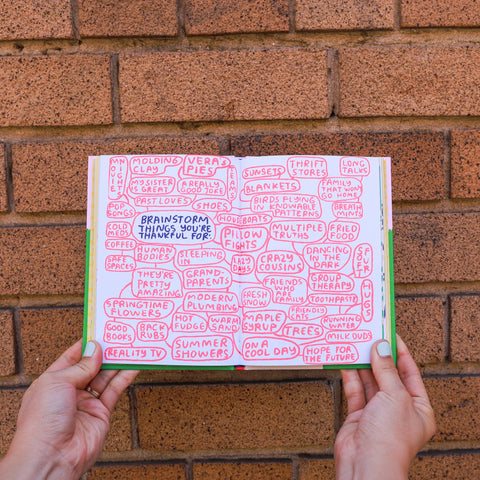 MOLDING
CLAY
VERA'S
PIES
MY SISTER
IS GREAT
A REALLY
GOOD JOKE
PAST LOVES
SMOES
POP
SONGS
COLD
MOON
COFFEE
SAFE
SPACES
BRAINSTORM
THINGS YOU'RE
THANKFUL FOR:
HUMAN
BODIES
SLEEPING
IN
THEY'RE
PRETTY
AMAZING
GRAND-
PARENTS
SPRINGTIME
FLOWERS
MODERN
PLUMBING
GOOD
BOOKS
BACK
RUBS
HOT
FUDGE
WARM
SAND
REALITY TV
SUMMER
SHOWERS
SUNSETS
THRIFT
STORES
LONG
TALKS
BLANKETS
FAMILY
THAT WON'T
GO HOME
BIRDS FLYING
IN ENJOYABLE
PATTERNS
BREATH
MINTS
HOUSE BOATS
PILLOW
FIGHTS
MULTIPLE
TRUTHS
FRIED
FOOD
LAZY
DAYS
CRAZY
COUSINS
DANCING
IN THE
DARK
SOFT
FUR
FRIENDS
WHO ARE
FAMILY
GROUP
THERAPY
FRESH
SNOW
TOOTHPASTE
HUGS
MAPLE
SYRUP
FRIENDS'
CATS
TREES
RUNNING
WATER
MILK DUDS
ON A
COOL DAY
HOPE FOR
THE FUTURE